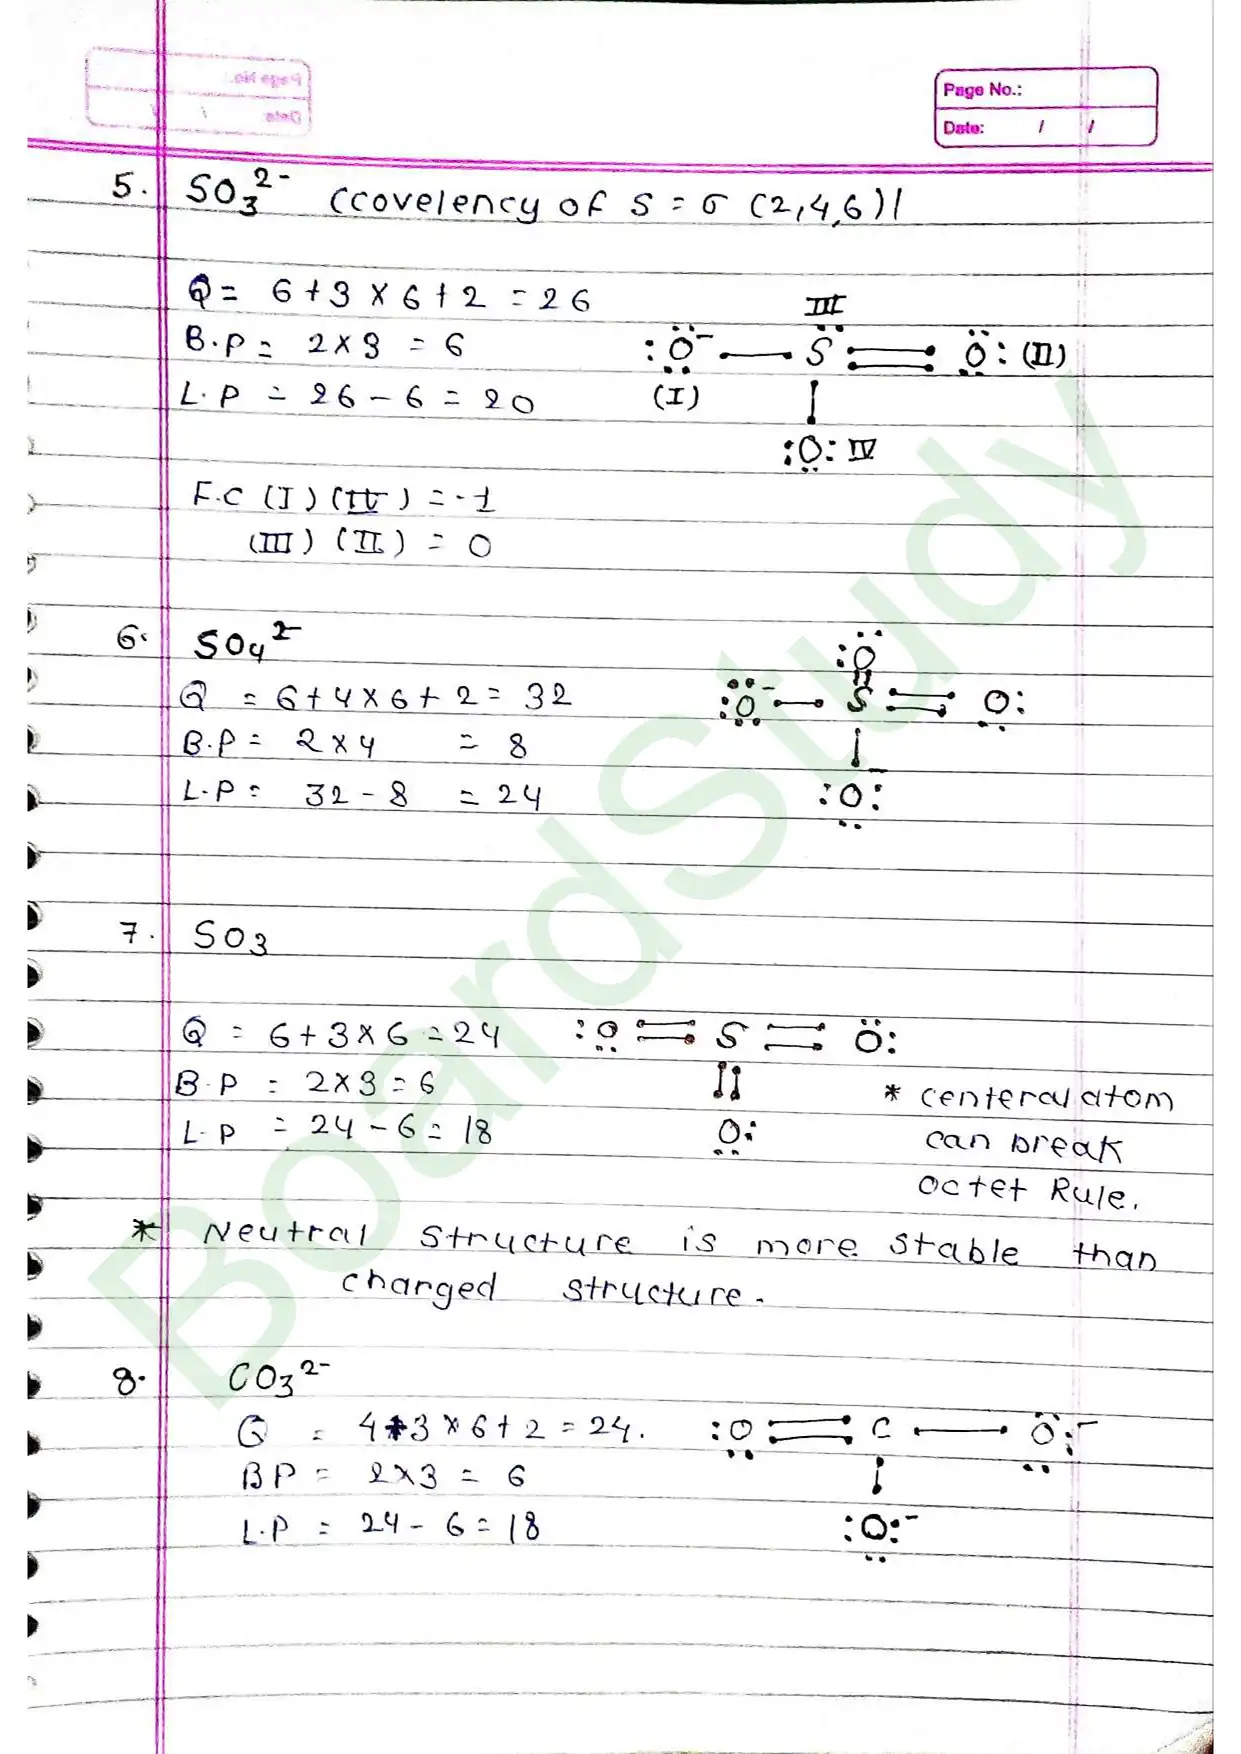 Page No.:
Date: / /
5. SO₃²⁻ (covelency of S = σ (2,4,6))
Q = 6 + 3 × 6 + 2 = 26
III
B.P = 2 × 3 = 6
:O⁻ — S = O: (II)
L.P = 26 - 6 = 20
(I)
:O: IV
F.C (I) (IV) = -1
(III) (II) = 0
6. SO₄²⁻
:O
Q = 6 + 4 × 6 + 2 = 32
:O⁻ — S = O:
B.P = 2 × 4 = 8
L.P = 32 - 8 = 24
:O:⁻
7. SO3
Q = 6 + 3 × 6 = 24
:O = S = O:
B.P = 2 × 3 = 6
* centeral atom
L.P = 24 - 6 = 18
O:
can break
octet Rule.
* Neutral structure is more stable than
charged structure.
8. CO₃²⁻
Q = 4 + 3 × 6 + 2 = 24.
:O = C — O:⁻
BP = 2 × 3 = 6
L.P = 24 - 6 = 18
:O:⁻
BoardStudy